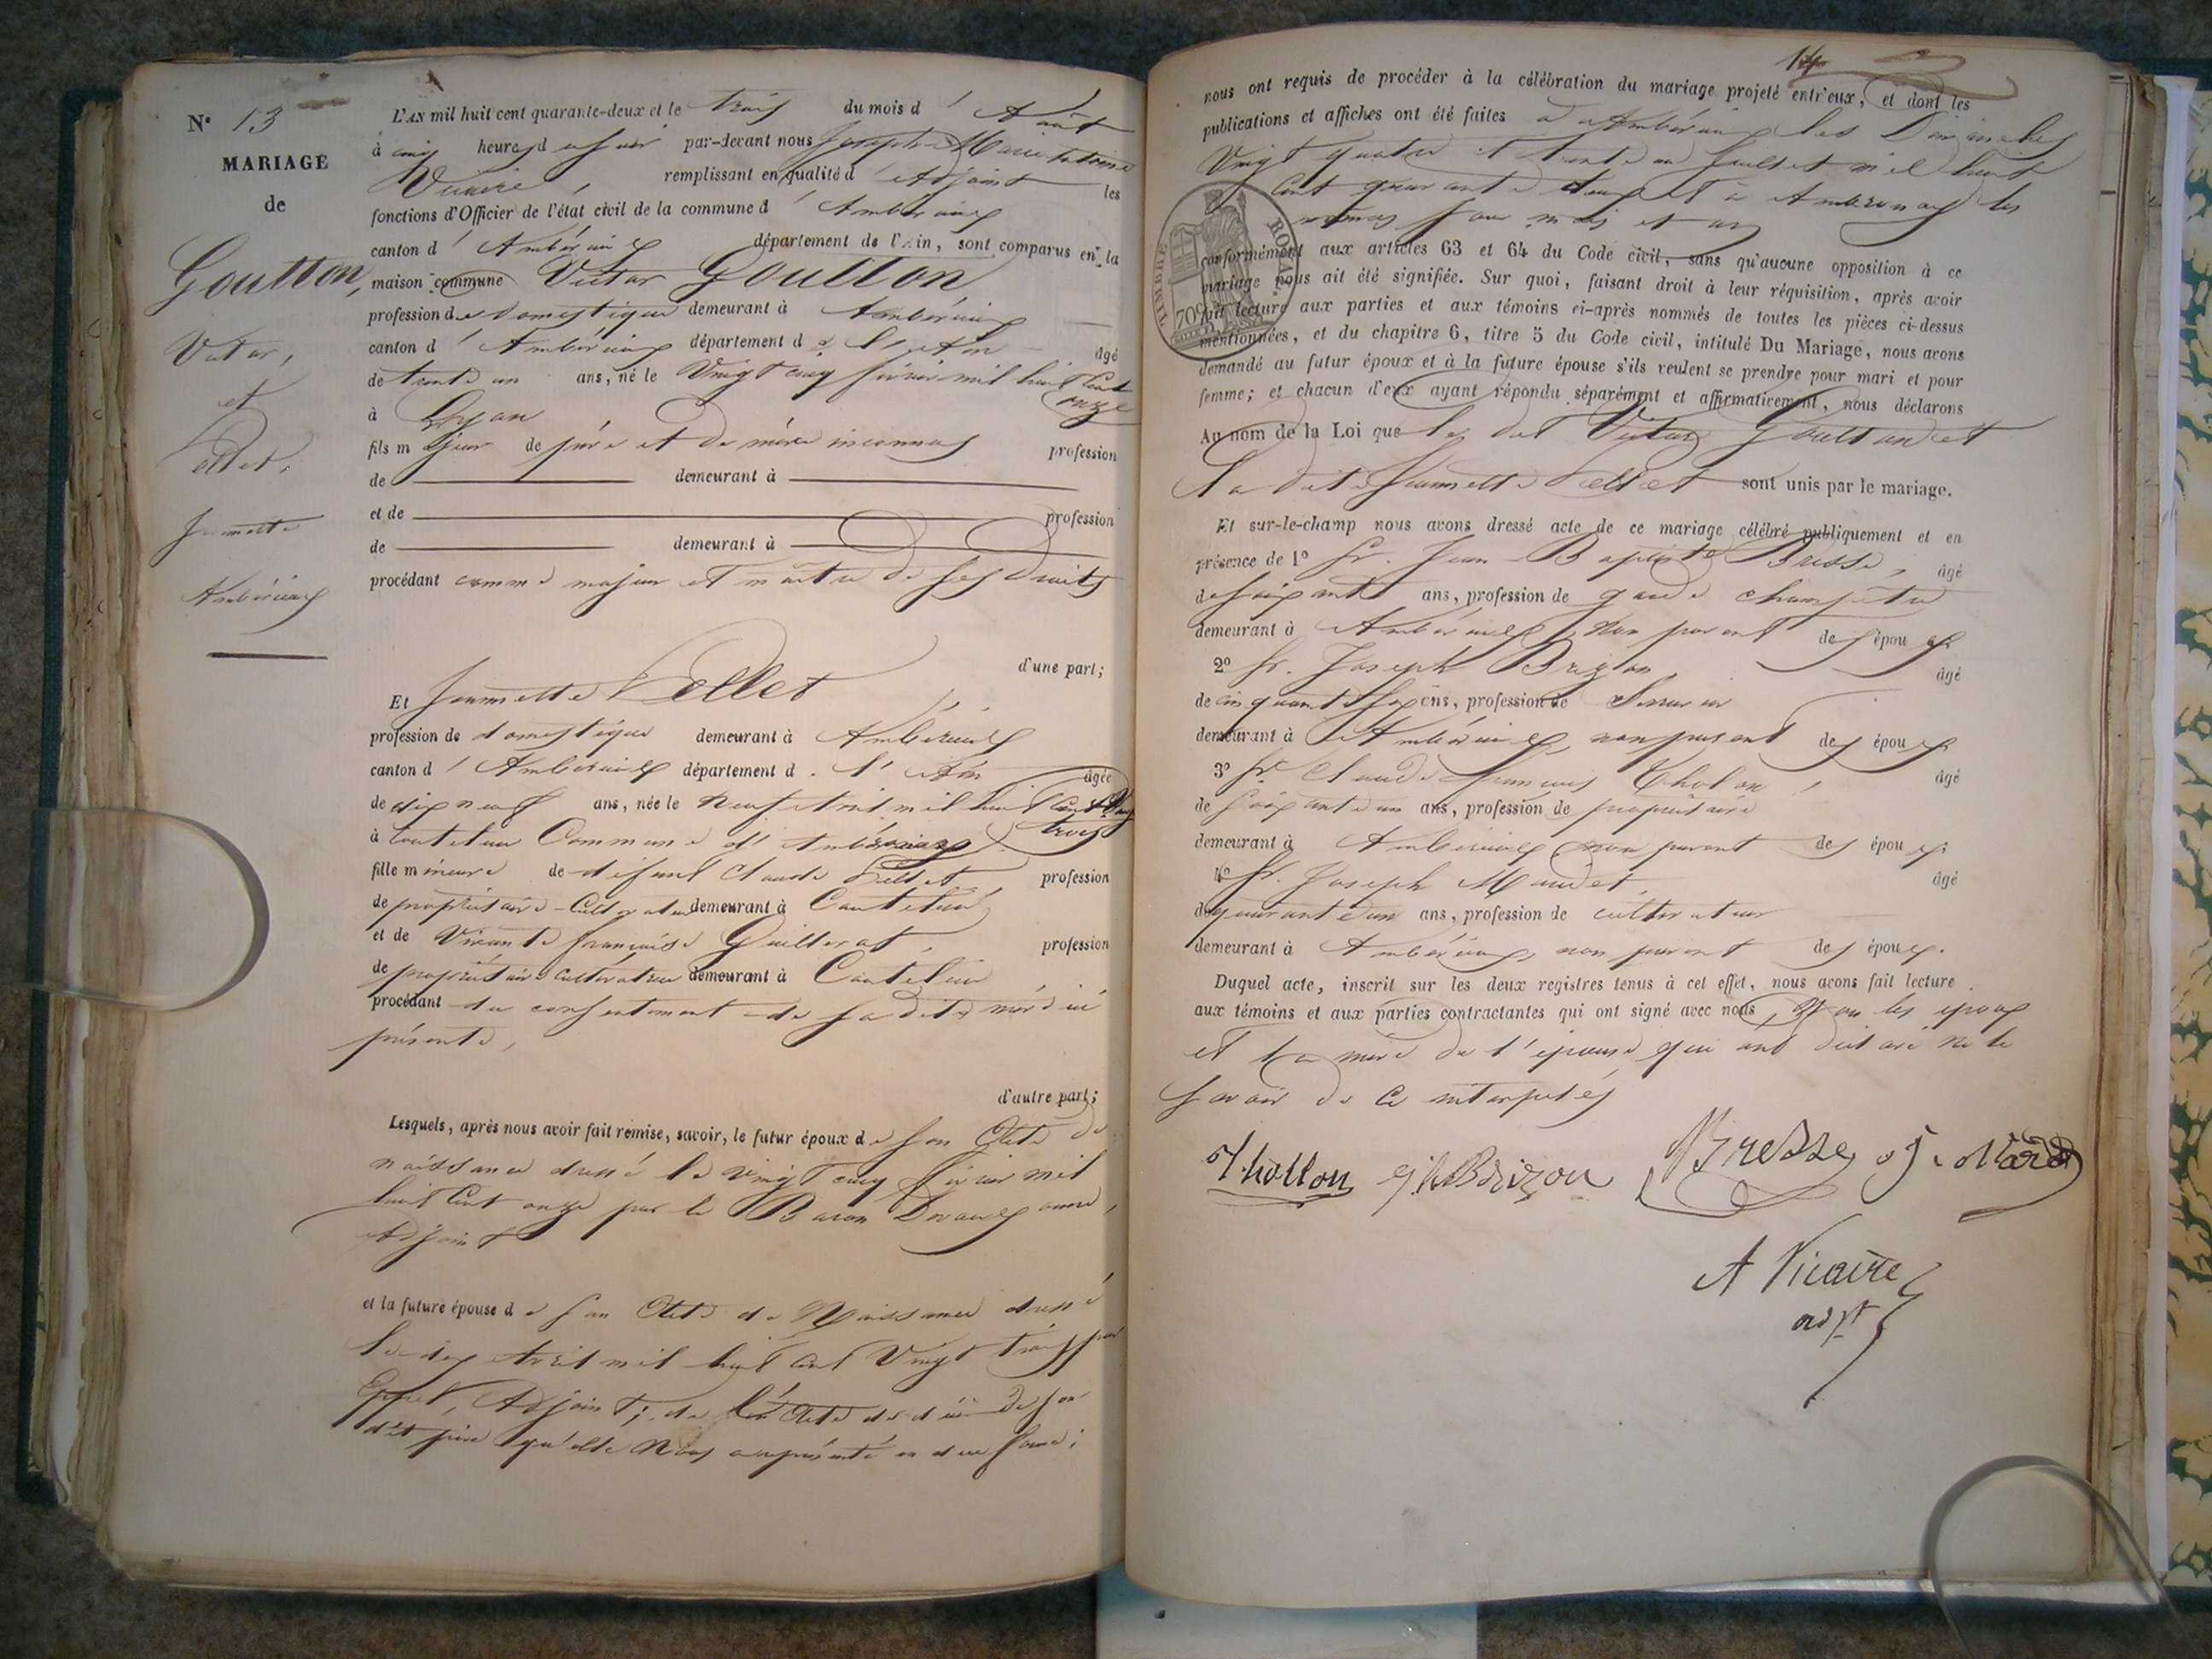 N° 13
MARIAGE
de
Goutton,
Victor,
et
Pellet,
Jeannette
Ambérieux
L'AN mil huit cent quarante-deux et le trois du mois d'Août
à cinq heures du soir par-devant nous Joseph Marie Antoine
Vicaire, remplissant en qualité d'Adjoint les
fonctions d'Officier de l'état civil de la commune d'Ambérieux
canton d'Ambérieux département de l'Ain, sont comparus en la
maison commune Victor Goutton
profession de domestique demeurant à Ambérieux
canton d'Ambérieux département de l'Ain âgé
de trente un ans, né le Vingt cinq février mil huit Cent
onze
à Lyon
fils majeur de père et de mère inconnus profession
de demeurant à
et de profession
de demeurant à
procédant comme majeur et maître de ses droits
d'une part;
Et Jeannette Pellet
profession de domestique demeurant à Ambérieux
canton d'Ambérieux département d. l'Ain âgée
de dix neuf ans, née le neuf Avril mil huit Cent Vingt
trois
à Commune d'
fille mineure de défunt Claude Pellet profession
de propriétaire-Cultivateur demeurant à
et de Vivante françoise Guillerat, profession
de propriétaire cultivatrice demeurant à
procédant du consentement de sa dite mère ici
présente,
d'autre part;
Lesquels, après nous avoir fait remise, savoir, le futur époux de son Acte de
naissance dressé le vingt cinq février mil
huit Cent onze par le Baron
Adjoint
et la future épouse de son Acte de Naissance dressé
le dix Avril mil huit cent Vingt trois par
Adjoint; de l'Acte de décès de son
dit père qu'elle Nous a représenté en due forme;
14
nous ont requis de procéder à la célébration du mariage projeté entr'eux, et dont les
publications et affiches ont été faites à Ambérieux les Dimanches
Vingt quatre et trente un Juillet mil huit
Cent quarante deux et à Ambronay les
mêmes jour mois et an
conformément aux articles 63 et 64 du Code civil, sans qu'aucune opposition à ce
mariage nous ait été signifiée. Sur quoi, faisant droit à leur réquisition, après avoir
fait lecture aux parties et aux témoins ci-après nommés de toutes les pièces ci-dessus
mentionnées, et du chapitre 6, titre 5 du Code civil, intitulé Du Mariage, nous avons
demandé au futur époux et à la future épouse s'ils veulent se prendre pour mari et pour
femme; et chacun d'eux ayant répondu séparément et affirmativement, nous déclarons
Au nom de la Loi que le dit Victor Goutton et
la dite Jeannette Pellet sont unis par le mariage.
Et sur-le-champ nous avons dressé acte de ce mariage célébré publiquement et en
présence de 1° Sr. Jean Baptiste Bresse, âgé
de soixante ans, profession de garde champêtre
demeurant à Ambérieux, non parent des époux
2° Sr. Joseph Brizon, âgé
de cinquante six ans, profession de Serrurier
demeurant à Ambérieux, non parent des époux
3° Sr. Claude françois Tholon, âgé
de soixante un ans, profession de propriétaire
demeurant à Ambérieux, non parent des époux;
4° Sr. Joseph Maudet, âgé
de quarante un ans, profession de cultivateur
demeurant à Ambérieux, non parent des époux.
Duquel acte, inscrit sur les deux registres tenus à cet effet, nous avons fait lecture
aux témoins et aux parties contractantes qui ont signé avec nous, Non les époux
et la mère de l'épouse qui ont déclaré ne le
savoir de ce interpelés
Thollon Brizon Bresse
A Vicaire
adjt
TIMBRE ROYAL
70c